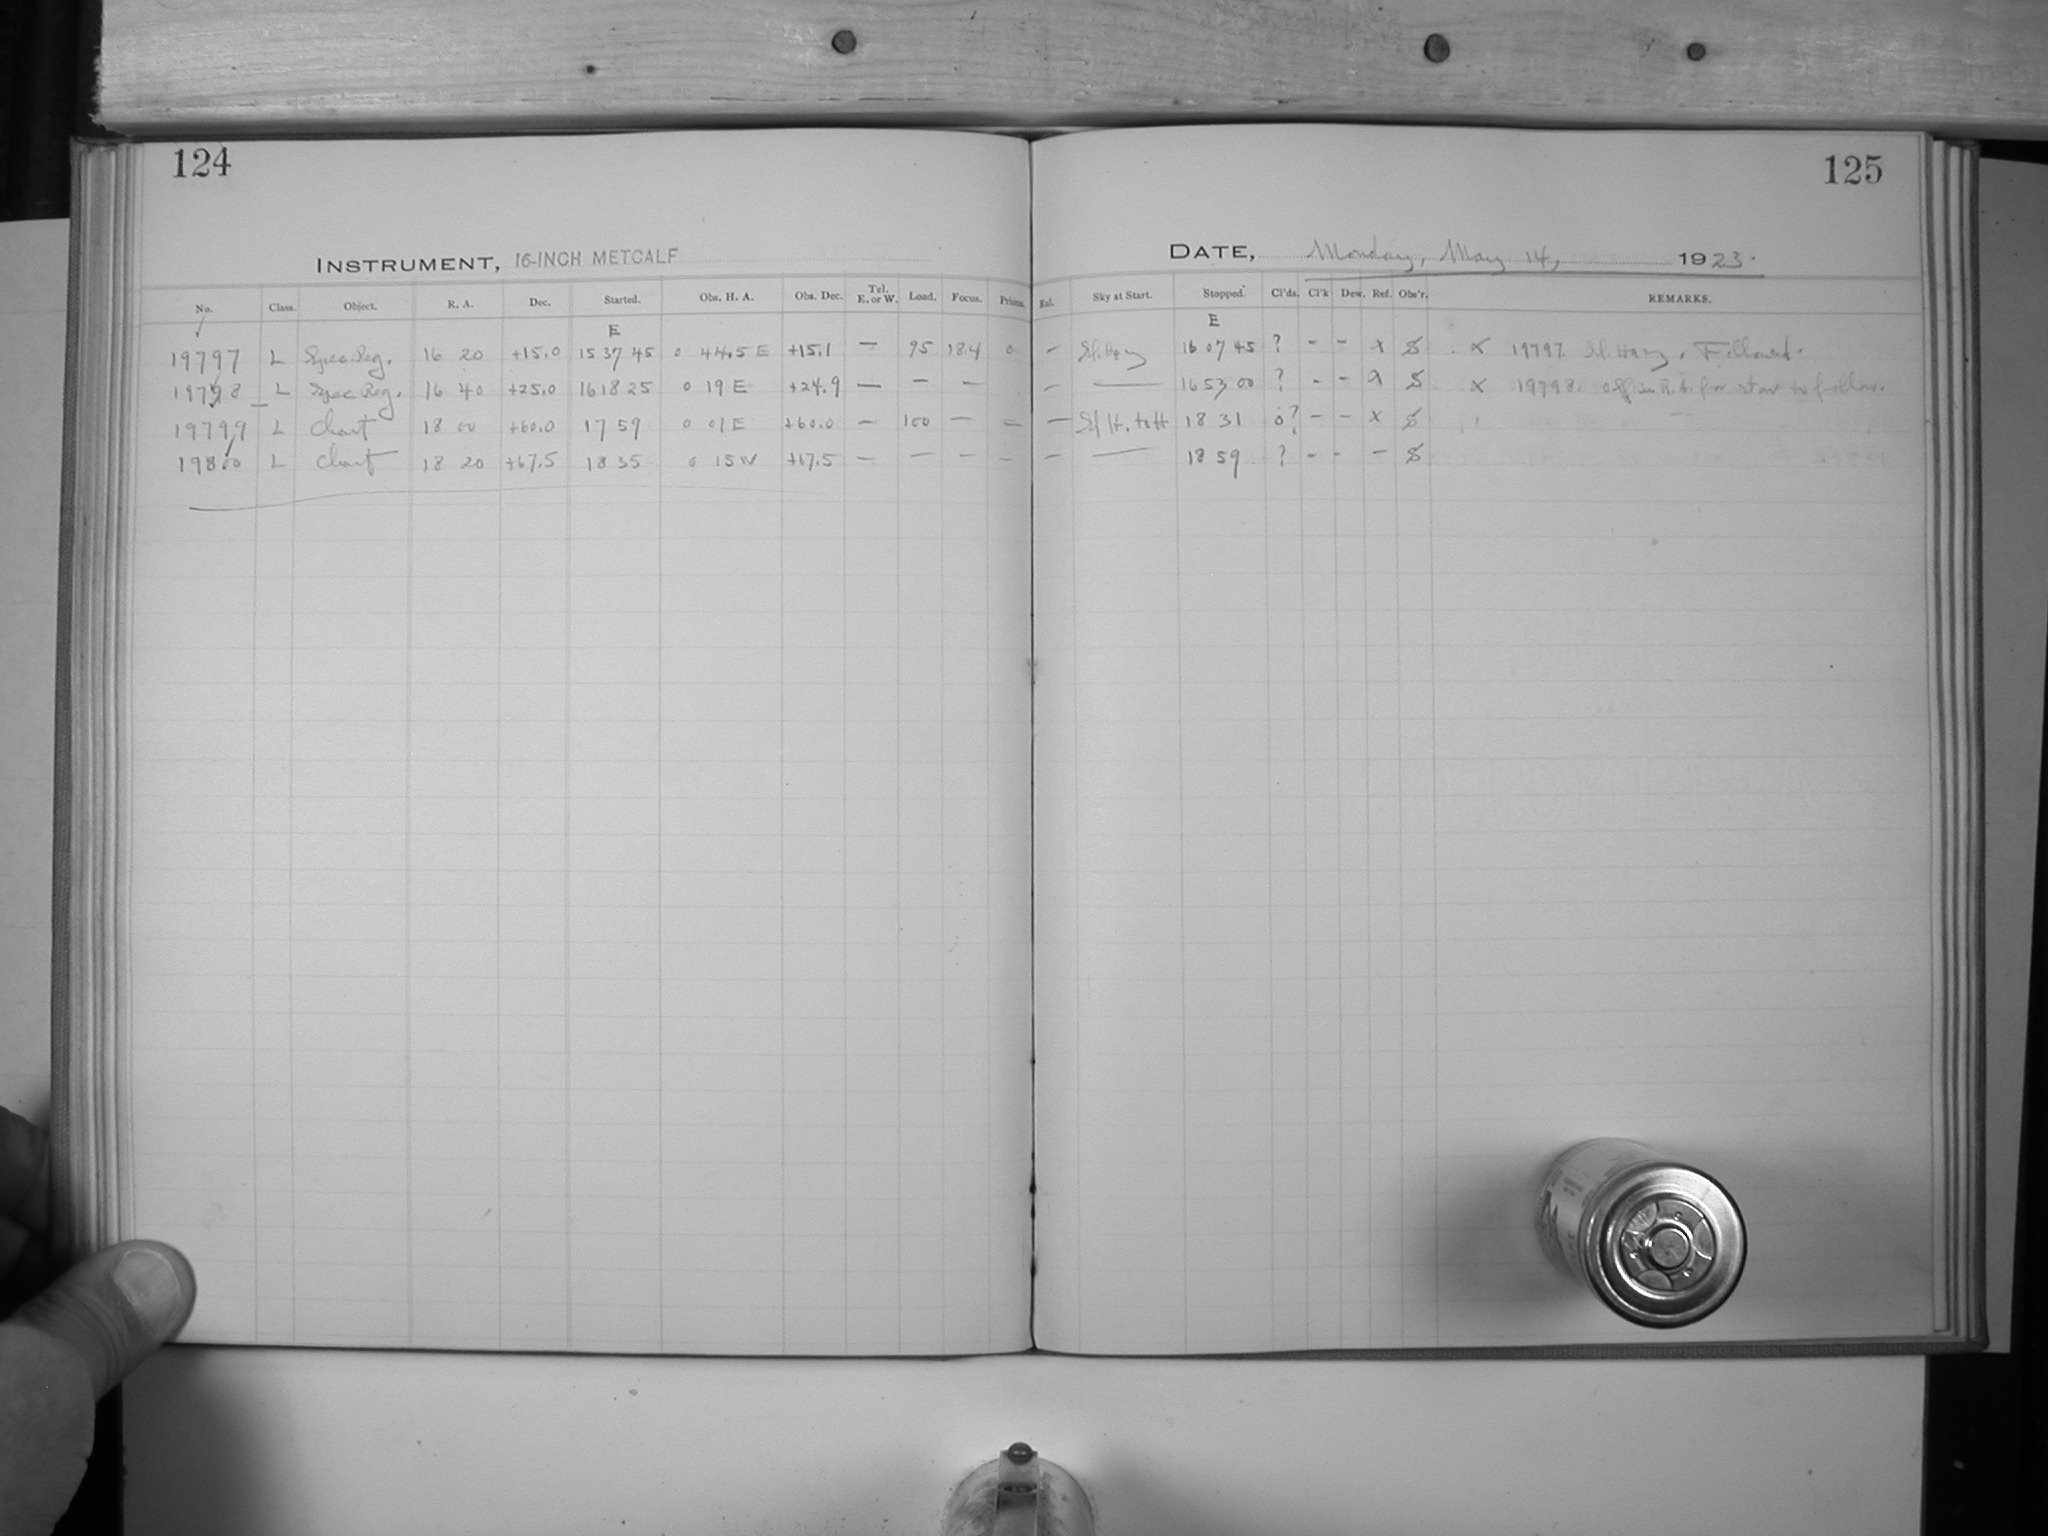 124
INSTRUMENT, 16-INCH METCALF
No. Class. Object. R. A. Dec. Started. Obs. H. A. Obs. Dec. Tel. E. or W. Load. Focus. Prisms.
E
19797 L Spec. Reg. 16 20 +15.0 15 37 45 0 44.5 E +15.1 — 95 18.4 0
19798 L Spec Reg. 16 40 +25.0 16 18 25 0 19 E +24.9 — — —
19799 L Chart 18 00 +60.0 17 59 0 01 E +60.0 — 100 — —
19800 L Chart 18 20 +67.5 18 35 0 15 W +67.5 — — — —
125
DATE, Monday, May 14, 1923.
Sky at Start. Stopped. Cl'ds. Cl'k Dew. Ref. Obs'r. REMARKS.
E
— Sl. Hazy 16 07 45 ? - - x S x 19797. Sl. Hazy. Followed.
— — 16 53 00 ? - - S x 19798. Off in R.A. for star to follow.
— Sl H. to H 18 31 0? - - x S
— — 18 59 ? - - - S